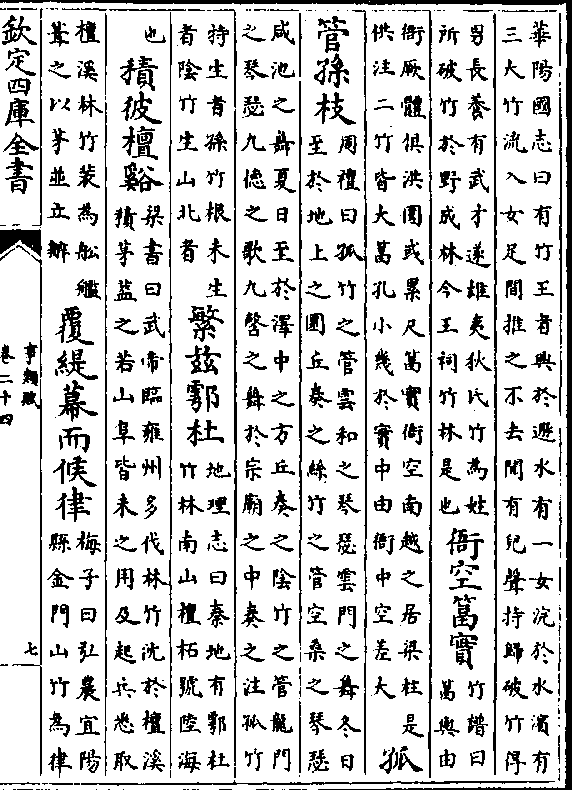 華陽國志曰有竹王者興於遯水有一女浣於水濱有
三大竹流入女足間推之不去聞有兒聲持歸破竹得
男長養有武才遂雄夷狄氏竹為姓
所破竹於野成林今王祠竹林是也
䇾空篙實
竹譜曰
篙與由
衙厥體俱洪圍或累尺篙實衙空南越之居梁柱是
供注二竹皆大篙孔小幾於實中由衙中空差大
孤
管孫枝
周禮曰孤竹之管雲和之琴瑟雲門之舞冬日
至於地上之圜丘奏之絲竹之管空桑之琴瑟
咸池之舞夏日至於澤中之方丘奏之陰竹之管龍門
之琴瑟九徳之歌九㲈之舞於宗廟之中奏之注孤竹
特生者孫竹根未生
者陰竹生山北者
繁茲鄠杜
地理志曰秦地有鄠杜
竹林南山檀柘號陸海
也
積彼檀谿
梁書曰武帝臨雍州多代林竹沈於檀溪
積茅葢之若山阜皆未之用及起兵悉取
檀溪林竹裝為舩艦
葺之以茅並立辦
覆緹幕而候律
梅子曰弘農宜陽
縣金門山竹為律
欽定四庫全書
事類賦
卷二十四
七